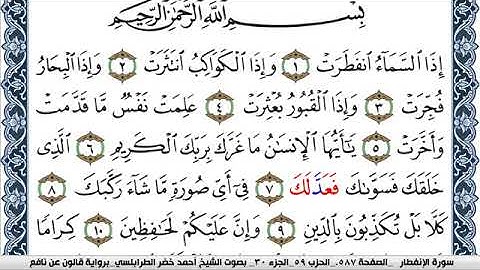 بِسْمِ اللَّهِ الرَّحْمَٰنِ الرَّحِيمِ
إِذَا اَ۬لسَّمَآءُ اُ۪نفَطَرَتْ ١ وَإِذَا اَ۬لْكَوَاكِبُ اُ۪نتَثَرَتْ ٢ وَإِذَا اَ۬لْبِحَارُ
فُجِّرَتْ ٣ وَإِذَا اَ۬لْقُبُورُ بُعْثِرَتْ ٤ عَلِمَتْ نَفْسٌ مَّا قَدَّمَتْ
وَأَخَّرَتْ ٥ يَٰٓأَيُّهَا اَ۬لْإِنسَٰنُ مَا غَرَّكَ بِرَبِّكَ اَ۬لْكَرِيمِ ٦ اِ۬لَّذِى
خَلَقَكَ فَسَوَّىٰكَ فَعَدَّلَكَ ٧ فِىٓ أَىِّ صُورَةٍ مَّا شَآءَ رَكَّبَكَ ٨
كَلَّا بَلْ تُكَذِّبُونَ بِالدِّينِ ٩ وَإِنَّ عَلَيْكُمْ لَحَٰفِظِينَ ١٠ كِرَامًا
سورة الإنفطار _ الصفحة ٥٨٧_ الحزب ٥٩_الجزء ٣٠_ بصوت الشيخ أحمد خضر الطرابلسي_برواية قالون عن نافع